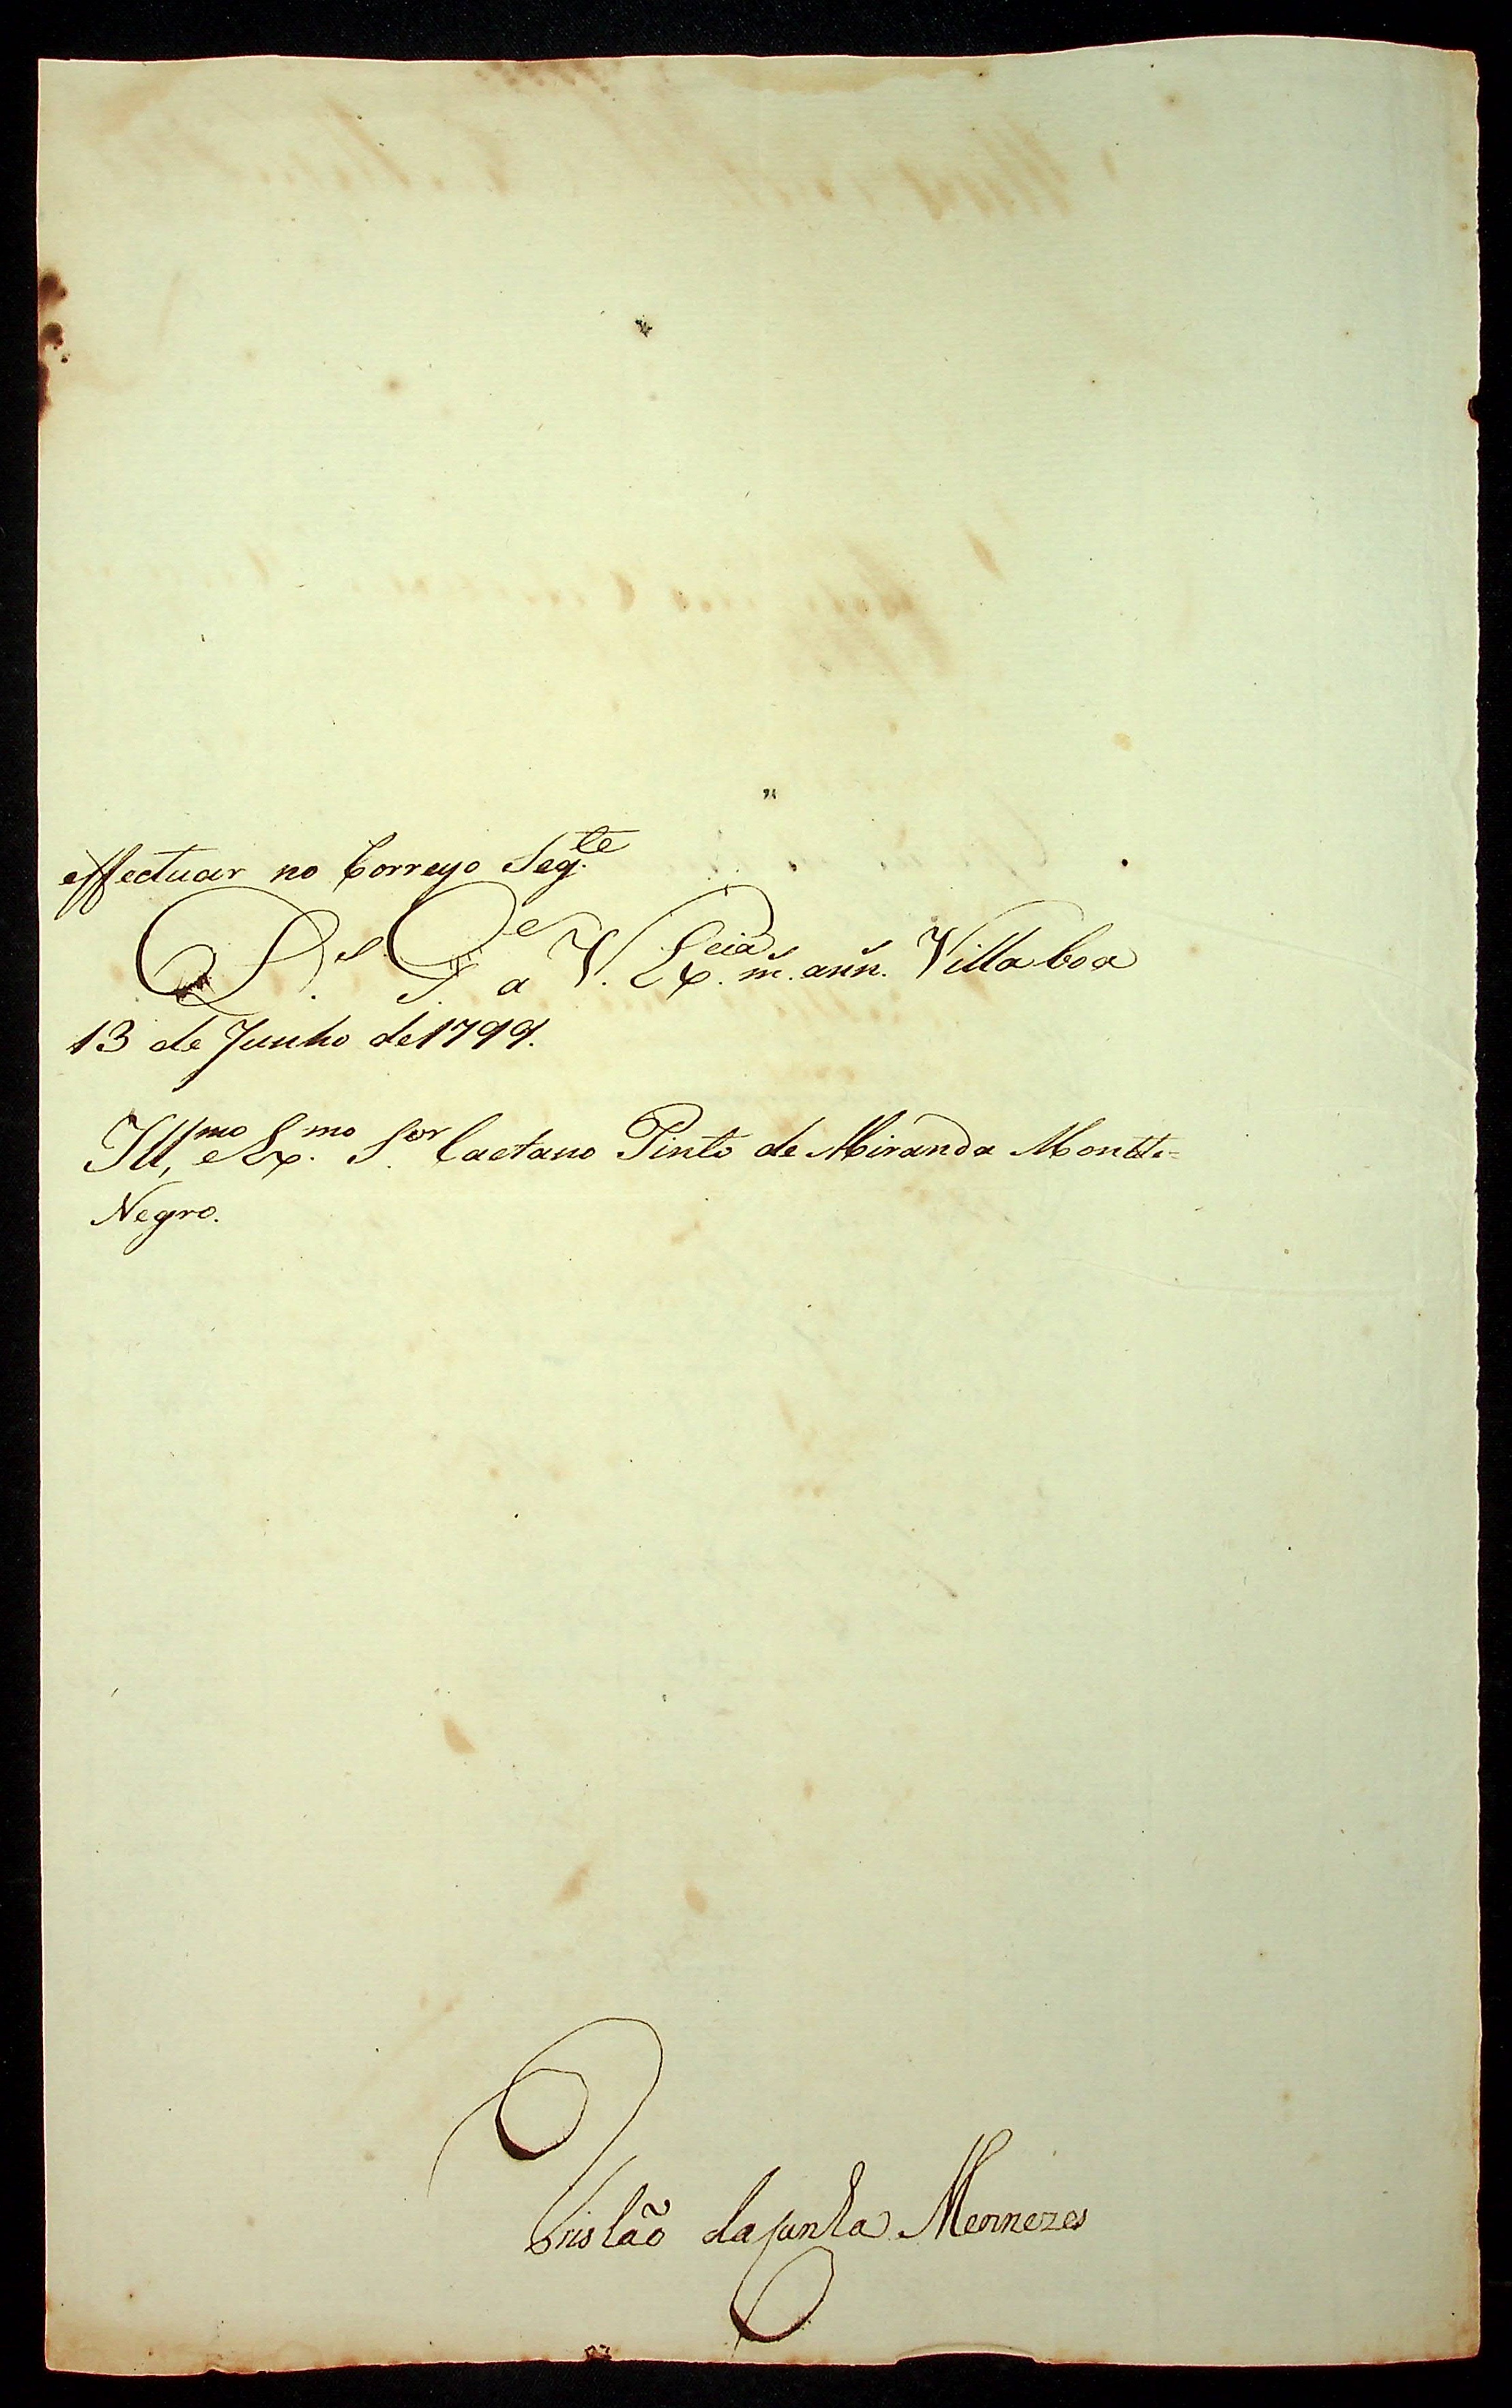 effectuar no Correyo Seg.te
D.s G.e a V. Ex.cia m.s ann.s Villa boa
13 de Junho de 1799.
Ill,mo e Ex.mo S.or Caetano Pinto de Miranda Montte=
Negro.
Tristão da Cunha Mennezes